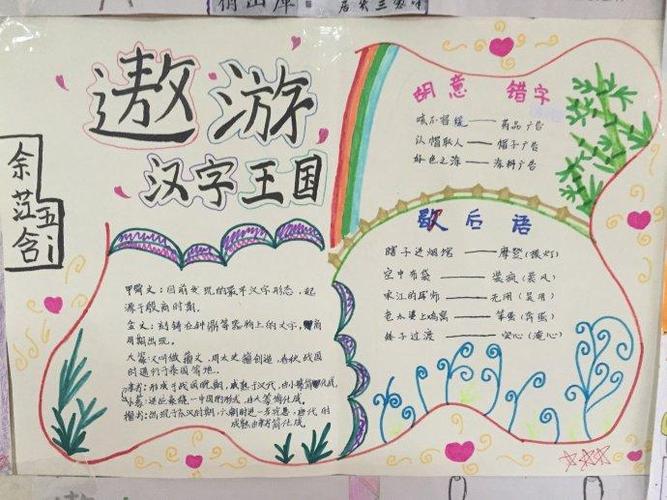 遨游
汉字王国
余
含
五
甲骨文：目前发现的最早汉字形态，起
源于殷商时期。
金文：刻铸在钟鼎等器物上的文字，商
周期出现。
大篆又叫做籀文，周太史籀创造，春秋战国
时通行于秦国等地。
隶书：形成于战国晚期，成熟于汉代，由小篆简化成
小篆：统一中国的形式，由大篆简化成。
楷书：出现于东汉时期，六朝时进一步完善，唐代时
成熟由隶书简化成。
胡意 错字
咳不容缓——药品广告
以帽取人——帽子广告
好色之涂——涂料广告
歇后语
瞎子进烟馆——摩登（摸灯）
空中布袋——装疯（装风）
宋江的军师——无用（吴用）
上鸡窝——笨蛋
子过渡——安心